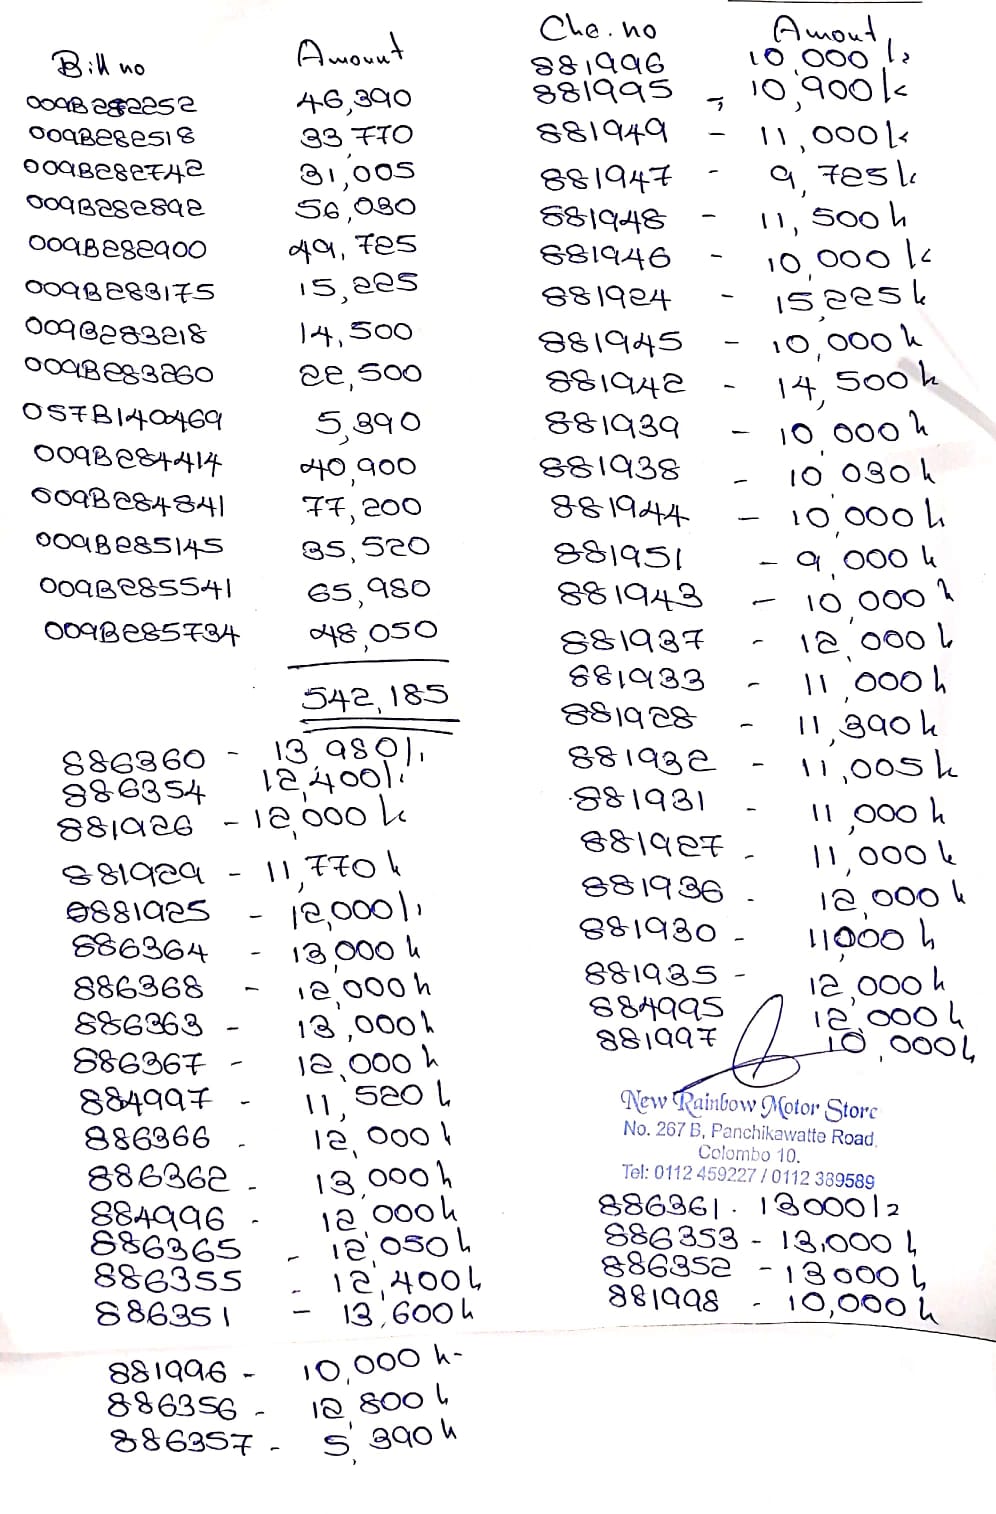 Bill no Amount
009B282252 46,390
009B282518 33,770
009B282742 31,005
009B282892 56,030
009B282900 49,725
009B283175 15,225
009B283218 14,500
009B283260 22,500
057B140469 5,390
009B284414 40,900
009B284841 77,200
009B285145 35,520
009B285541 65,980
009B285734 48,050
542,185
886360 - 13,980/-
886354 12,400/-
881926 - 12,000/-
881929 - 11,770/-
0881925 - 12,000/-
886364 - 13,000/-
886368 - 12,000/-
886363 - 13,000/-
886367 - 12,000/-
884997 - 11,520/-
886366 - 12,000/-
886362 - 13,000/-
884996 - 12,000/-
886365 - 12,050/-
886355 - 12,400/-
886351 - 13,600/-
881996 - 10,000/-
886356 - 12,800/-
886357 - 5,390/-
Che. no Amout
881996 10,000/-
881995 - 10,900/-
881949 - 11,000/-
881947 - 9,725/-
881948 - 11,500/-
881946 - 10,000/-
881924 - 15,225/-
881945 - 10,000/-
881942 - 14,500/-
881939 - 10,000/-
881938 - 10,030/-
881944 - 10,000/-
881951 - 9,000/-
881943 - 10,000/-
881937 - 12,000/-
881933 - 11,000/-
881928 - 11,390/-
881932 - 11,005/-
881931 - 11,000/-
881927 - 11,000/-
881936 - 12,000/-
881930 - 11,000/-
881935 - 12,000/-
884995 12,000/-
881997 10,000/-
New Rainbow Motor Store
No. 267 B, Panchikawatte Road,
Colombo 10.
Tel: 0112 459227 / 0112 389589
886361. 13000/-
886353 - 13,000/-
886352 - 13000/-
881998 - 10,000/-